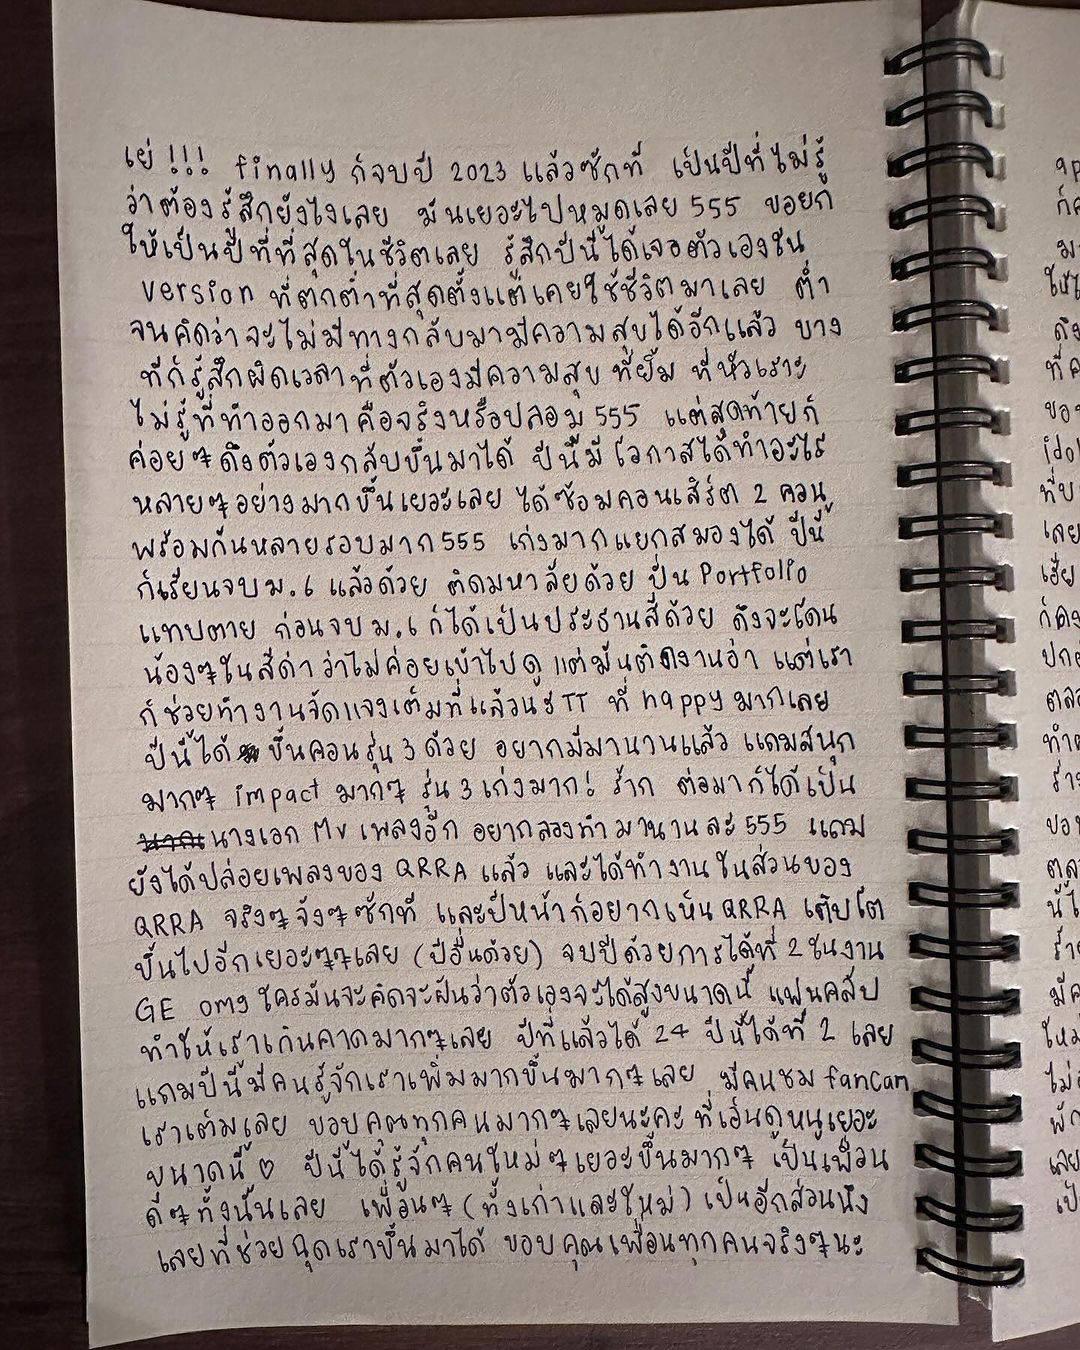 เย่ !!! finally ก็จบปี 2023 แล้วซักที เป็นปีที่ไม่รู้
ว่าต้องรู้สึกยังไงเลย มันเยอะไปหมดเลย 555 ขอยก
ให้เป็นปีที่ที่สุดในชีวิตเลย รู้สึกปีนี้ได้เจอตัวเองใน
version ที่ตกต่ำที่สุดตั้งแต่เคยใช้ชีวิตมาเลย ต่ำ
จนคิดว่าจะไม่มีทางกลับมามีความสุขได้อีกแล้ว บาง
ทีก็รู้สึกผิดเวลาที่ตัวเองมีความสุข ที่ยิ้ม ที่หัวเราะ
ไม่รู้ที่ทำออกมาคือจริงหรือปลอม 555 แต่สุดท้ายก็
ค่อยๆดึงตัวเองกลับขึ้นมาได้ ปีนี้มีโอกาสได้ทำอะไร
หลายๆอย่างมากขึ้นเยอะเลย ได้ซ้อมคอนเสิร์ต 2 คอน
พร้อมกันหลายรอบมาก 555 เก่งมากแยกสมองได้ ปีนี้
ก็เรียนจบ ม.6 แล้วด้วย ติดมหาลัยด้วย ปั่น Portfolio
แทบตาย ก่อนจบ ม.6 ก็ได้เป็นประธานสีด้วย ถึงจะโดน
น้องๆในสีด่าว่าไม่ค่อยเข้าไปดู แต่มันติดงานอ่า แต่เรา
ก็ช่วยทำงานจัดแจงเต็มที่แล้วนะ TT ที่ happy มากเลย
ปีนี้ได้ ขึ้นคอนรุ่น 3 ด้วย อยากมีมานานแล้ว แถมสนุก
มากๆ impact มากๆ รุ่น 3 เก่งมาก! ร้าก ต่อมาก็ได้เป็น
นางเอก MV เพลงอีก อยากลองทำมานานละ 555 แถม
ยังได้ปล่อยเพลงของ QRRA แล้ว และได้ทำงานในส่วนของ
QRRA จริงๆจังๆซักที และปีหน้าก็อยากเห็น QRRA เติบโต
ขึ้นไปอีกเยอะๆๆเลย (ปีอื่นด้วย) จบปีด้วยการได้ที่ 2 ในงาน
GE omg ใครมันจะคิดจะฝันว่าตัวเองจะได้สูงขนาดนี้ แฟนคลับ
ทำให้เราเกินคาดมากๆเลย ปีที่แล้วได้ 24 ปีนี้ได้ที่ 2 เลย
แถมปีนี้มีคนรู้จักเราเพิ่มมากขึ้นมากๆเลย มีคนชม fancam
เราเต็มเลย ขอบคุณทุกคนมากๆเลยนะคะ ที่เอ็นดูหนูเยอะ
ขนาดนี้ ♡ ปีนี้ได้รู้จักคนใหม่ๆเยอะขึ้นมากๆ เป็นเพื่อน
ดีๆทั้งนั้นเลย เพื่อนๆ (ทั้งเก่าและใหม่) เป็นอีกส่วนนึง
เลยที่ช่วยฉุดเราขึ้นมาได้ ขอบคุณเพื่อนทุกคนจริงๆนะ